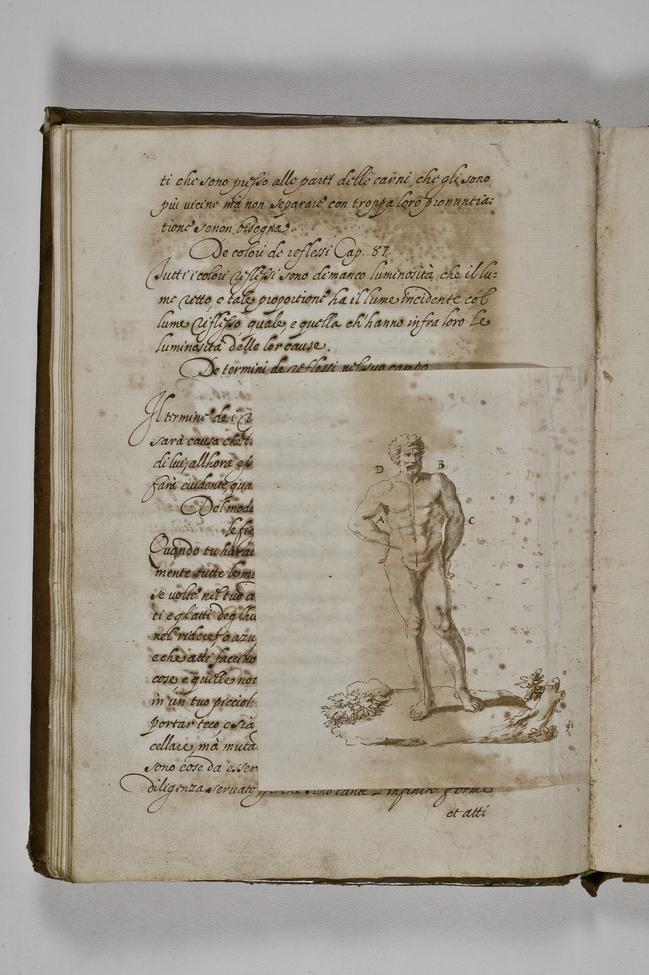 ti che sono presso alle parti delle carni, che gli sono
più vicine mà non separare con troppa loro pronuntia:
tione se non bisogna.
De colori de reflessi Cap. 87.
Tutti i colori reflessi sono di manco luminosità, che il lu-
me retto, e tale proportione ha il lume incidente col
lume reflesso quale, e quella ch'hanno infra loro le
luminosità delle lor cause.
De termini de reflessi nel suo campo
Il termine de
sarà causa che
di lui, allhora
farà evidente,
Del
le
Quando tu
mente tutte le
se volte nel tuo
ti e gl'atti degl'
nel ridere o
e che atti
cose e quelle
in un tuo
portar teco, e
cellare, mà
sono cose da
diligenza servate infinite forme
et atti
D B
A C
91